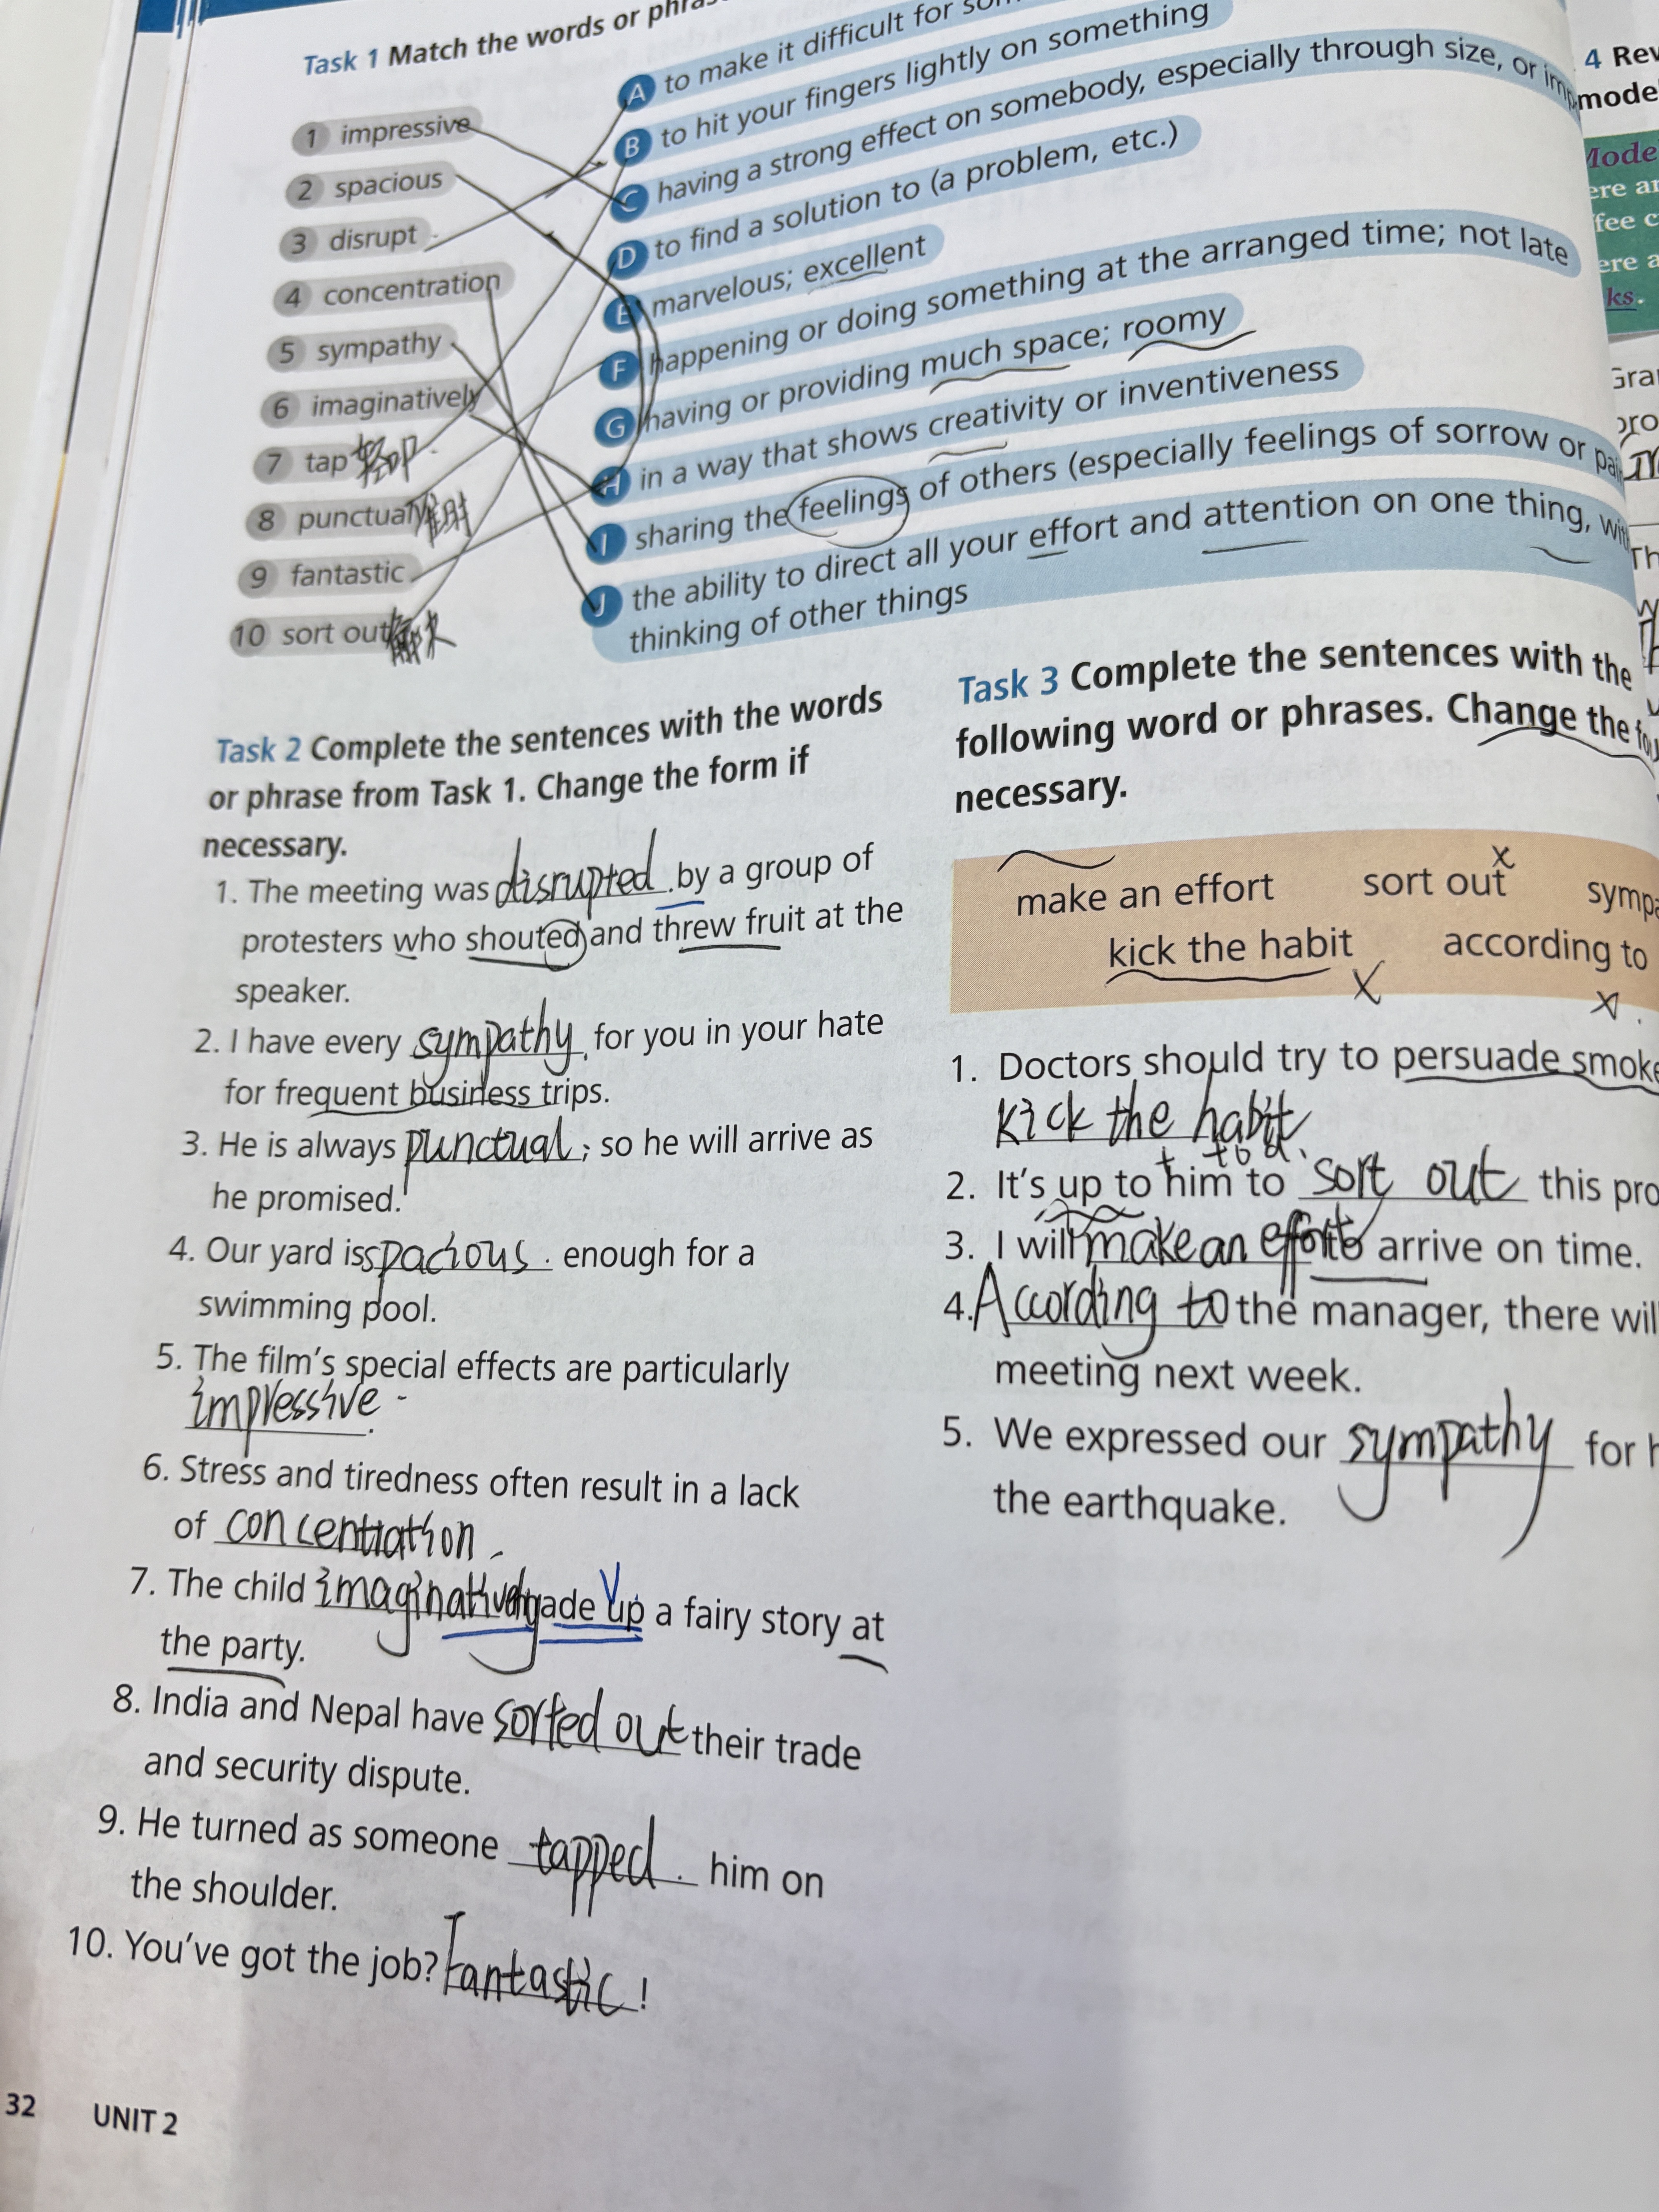 Task 1 Match the words or
1 impressive
2 spacious
3 disrupt
4 concentration
5 sympathy
6 imaginatively
7 tap 轻叩
8 punctual
9 fantastic
10 sort out 解决
A to make it difficult for
B to hit your fingers lightly on something
C having a strong effect on somebody, especially through size, or
D to find a solution to (a problem, etc.)
E marvelous; excellent
F happening or doing something at the arranged time; not late
G having or providing much space; roomy
H in a way that shows creativity or inventiveness
I sharing the feelings of others (especially feelings of sorrow or
J the ability to direct all your effort and attention on one thing,
thinking of other things
Task 2 Complete the sentences with the words
or phrase from Task 1. Change the form if
necessary.
1. The meeting was disrupted by a group of
protesters who shouted and threw fruit at the
speaker.
2. I have every sympathy for you in your hate
for frequent business trips.
3. He is always punctual; so he will arrive as
he promised.
4. Our yard is spacious enough for a
swimming pool.
5. The film's special effects are particularly
impressive.
6. Stress and tiredness often result in a lack
of concentration
7. The child imaginatively made up a fairy story at
the party.
8. India and Nepal have sorted out their trade
and security dispute.
9. He turned as someone tapped him on
the shoulder.
10. You've got the job? Fantastic!
32 UNIT 2
Task 3 Complete the sentences with the
following word or phrases. Change the
necessary.
make an effort sort out x
kick the habit x according to x
1. Doctors should try to persuade
kick the habit
+ to d.
2. It's up to him to sort out this
3. I will make an effort to arrive on time.
4. According to the manager, there
meeting next week.
5. We expressed our sympathy for
the earthquake.
4
ks.